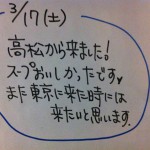 3/17(土)
高松から来ました!
スープおいしかったです♥
また東京に来た時には
来たいと思います。